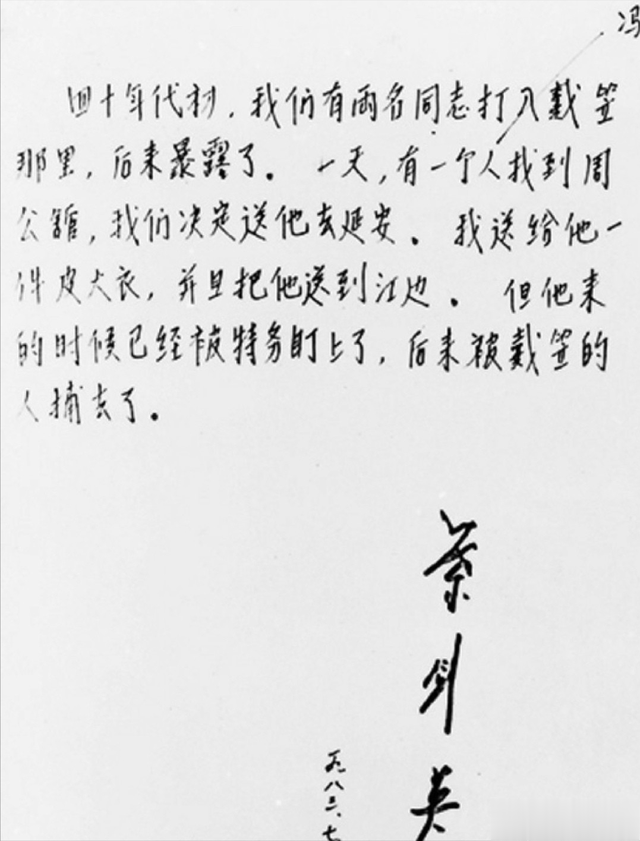 冯
四十年代初，我们有两名同志打入戴笠
那里，后来暴露了。一天，有一个人找到周
公馆，我们决定送他去延安。我送给他一
件皮大衣，并且把他送到江边。但他来
的时候已经被特务盯上了，后来被戴笠的
人捕去了。
叶剑英
一九八三、七